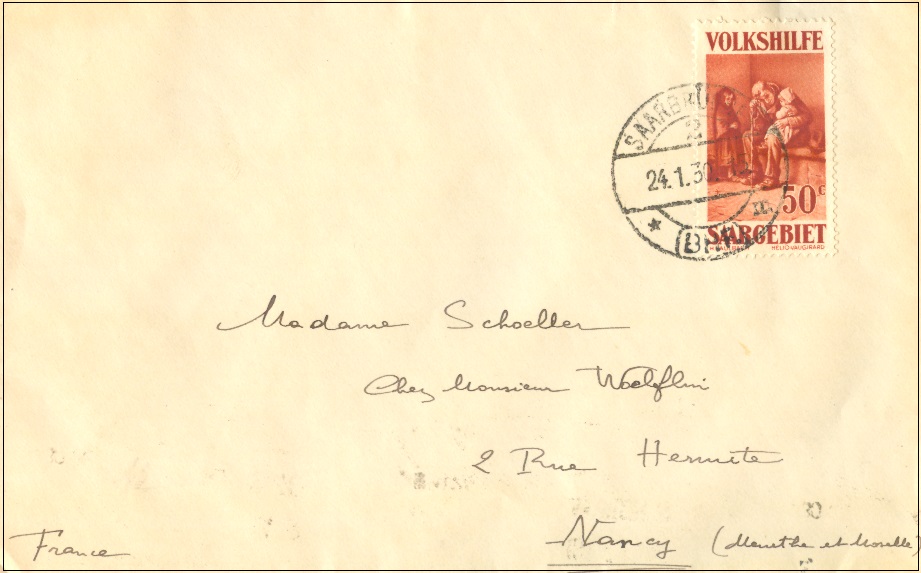 VOLKSHILFE
SAARBRÜ
2
24.1.30.
50c
SAARGEBIET
HELIO VAUGIRARD
Madame Schoeller
Chez Monsieur Woelflin
2 Rue Hermite
Nancy (Meurthe et Moselle)
France